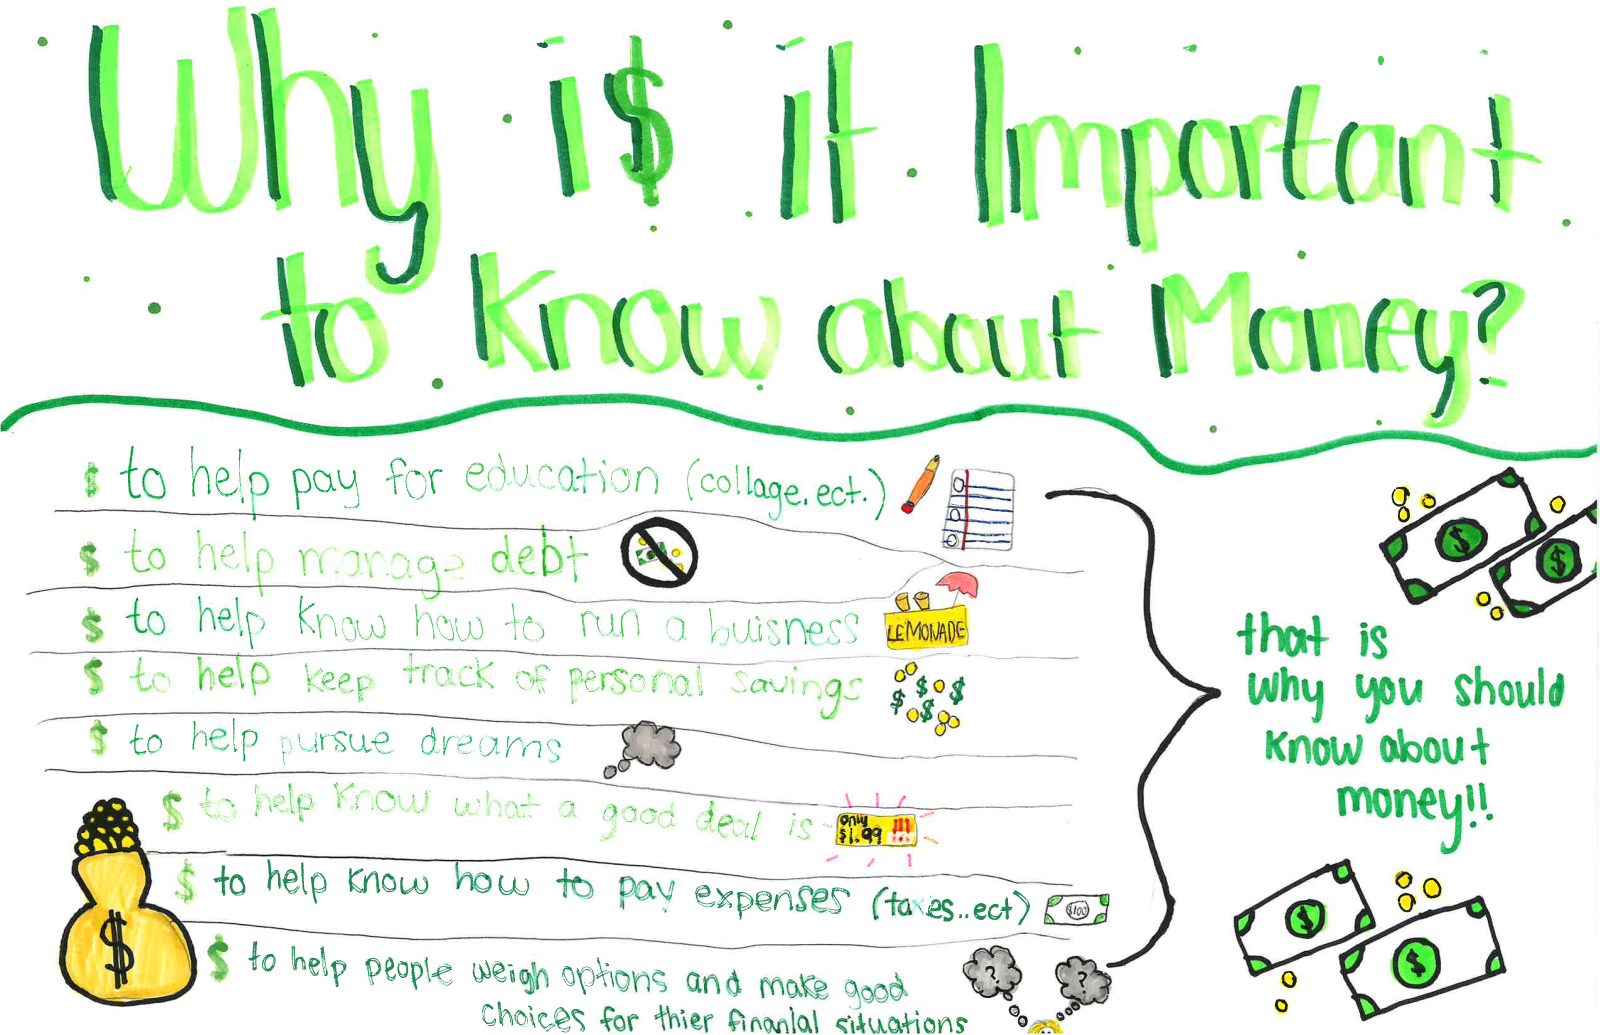 Why i$ it Important
to know about Money?
$ to help pay for education (collage.ect.)
$ to help manage debt
$ to help know how to run a buisness
LEMONADE
$ to help keep track of personal savings
$ to help pursue dreams
$ to help know what a good deal is
only
$1.99 !!!
$ to help know how to pay expenses (taxes..ect)
$100
$ to help people weigh options and make good
choices for thier finanial situations
? ?
that is
why you should
know about
money!!
$
$
$
$
$
$ $ $ $